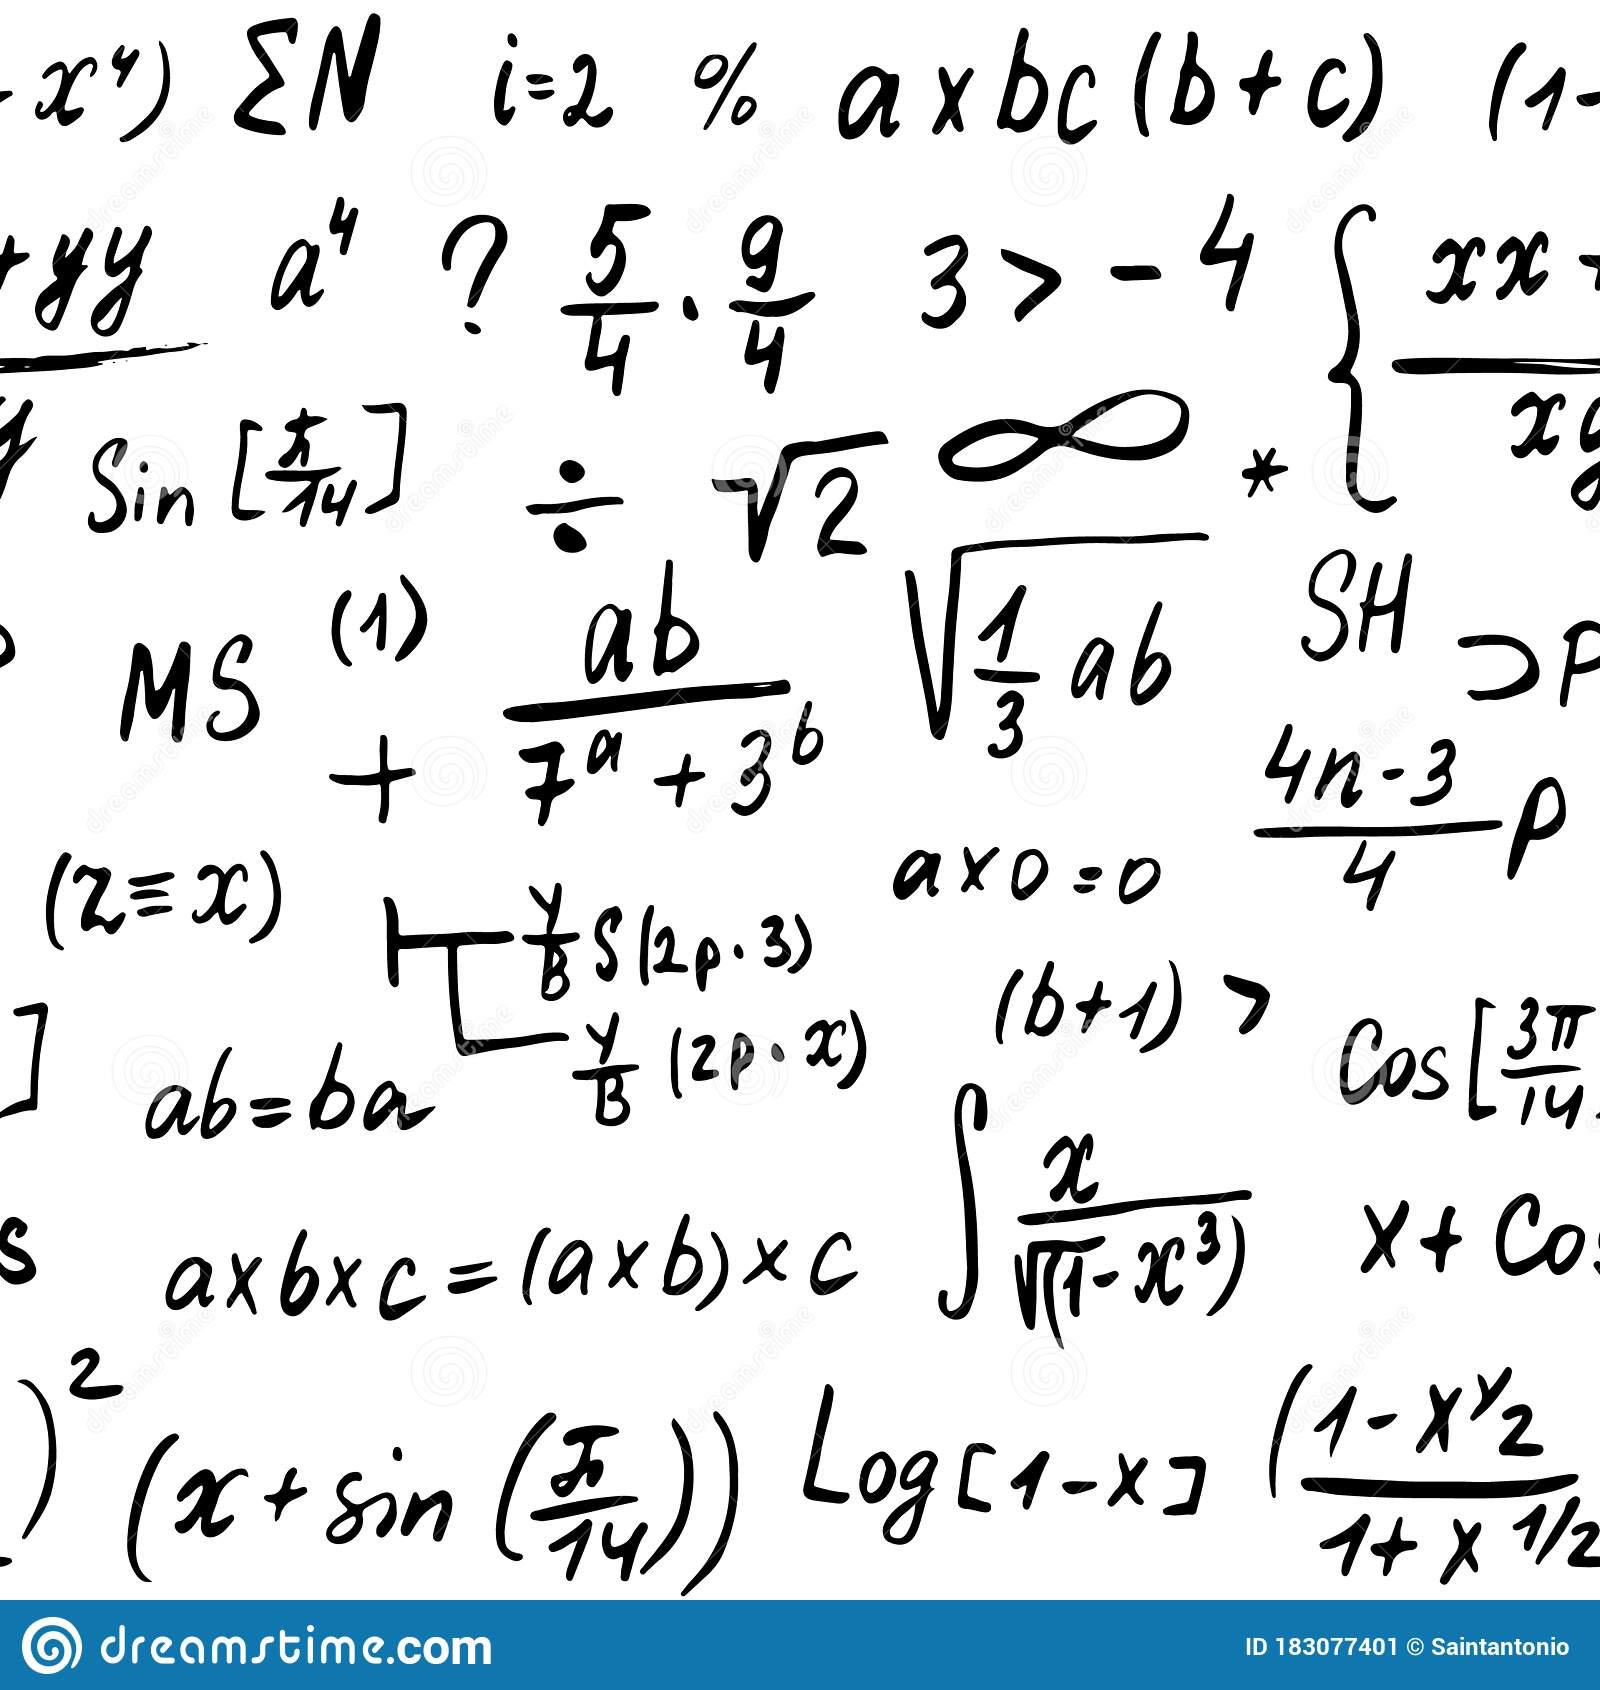 - x⁴) ΣN i=2 % a x bc (b + c) (1-
+yy a⁴ ? 5/4 · 9/4 3 > - 4 { xx +
Sin [π/14] ÷ √2 ∞ * xy
MS (1) ab/(7ᵃ + 3ᵇ) √(1/3 ab) SH ⊃P
+ (4n-3)/4 P
(z ≡ x) Y/B S(2p · 3) a x 0 = 0
Y/B (2p · x) (b+1) > Cos [3π/14
] ab = ba
s a x b x c = (a x b) x c ∫ x/√(1-x³) x + Cos
)² (x + sin (π/14)) Log [1-x] (1-xʸ2 / 1+x 1/2
dreamstime.com ID 183077401 © Saintantonio